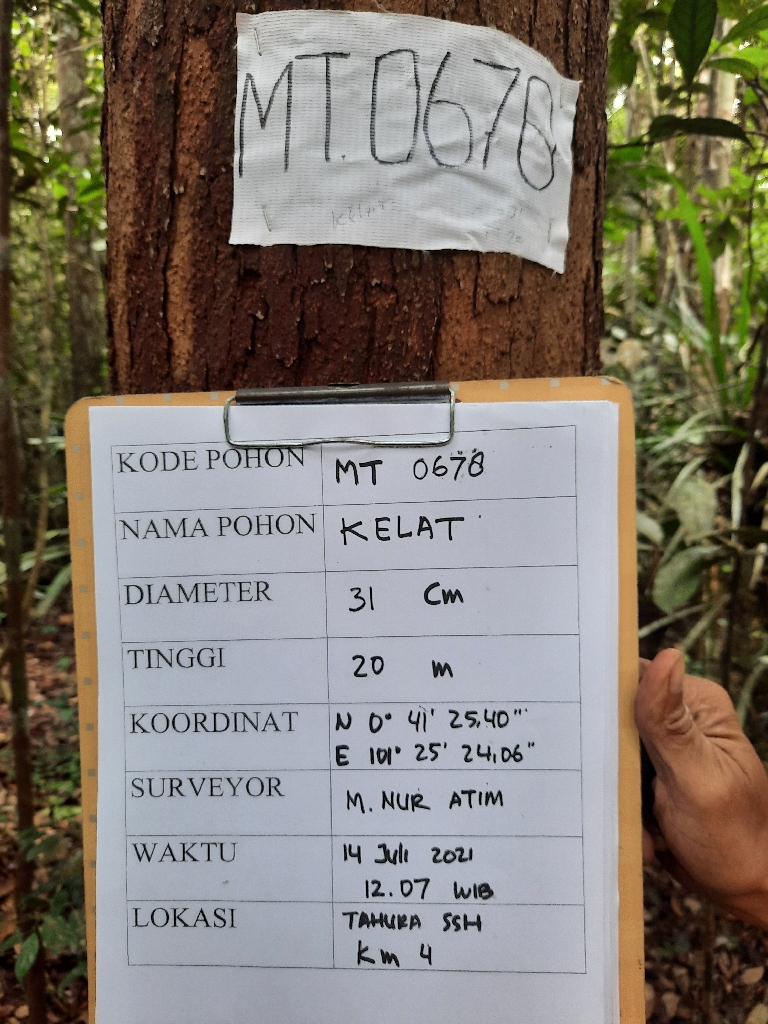 MT.0678
KODE POHON MT 0678
NAMA POHON KELAT
DIAMETER 31 Cm
TINGGI 20 m
KOORDINAT N 0° 41' 25,40"
E 101° 25' 24,06"
SURVEYOR M. NUR ATIM
WAKTU 14 Juli 2021
12.07 WIB
LOKASI TAHURA SSH
Km 4